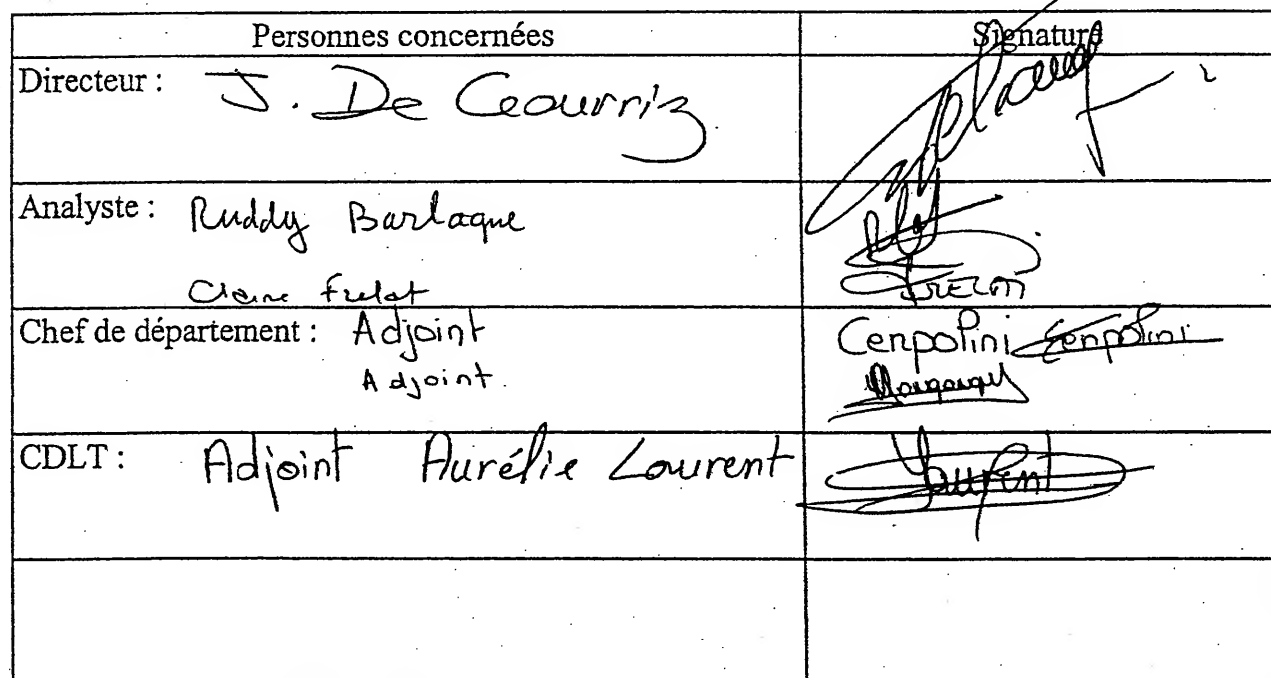 Personnes concernées Signature
Directeur : J. De Ceaurriz
Analyste : Ruddy Barlagne
Claire Frelat
Chef de département : Adjoint Cerpolini Cerpolini
Adjoint.
CDLT : Adjoint Aurélie Laurent Laurent